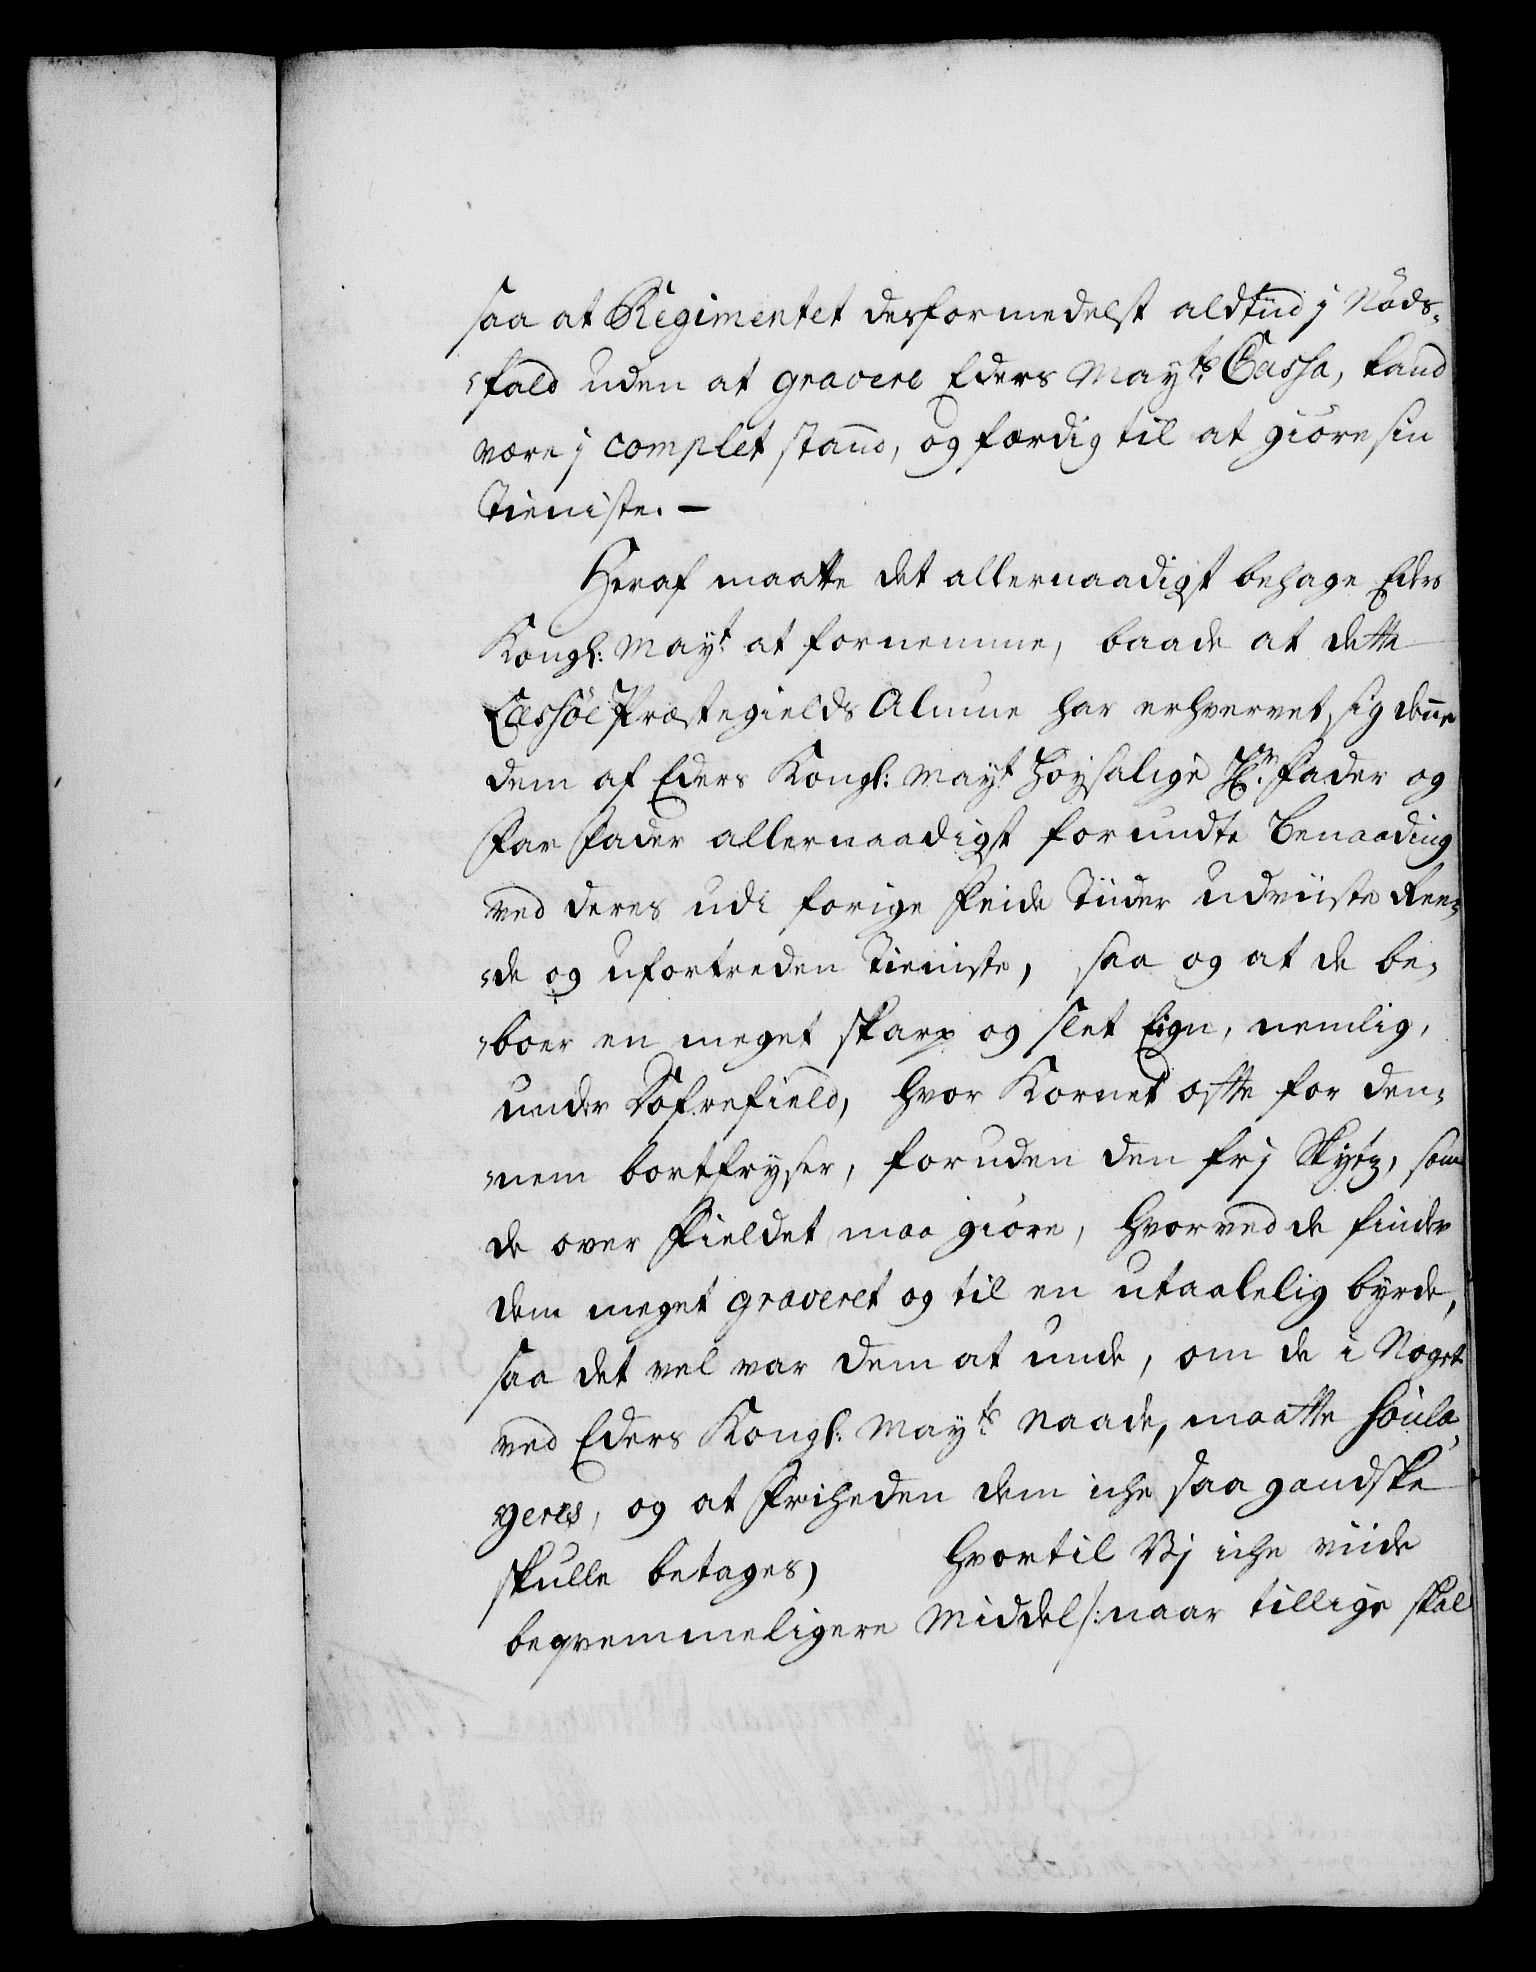 saa at Regimentet desformedelst aldtiid j Nøds-
fald uden at gravere Eders Mayts Cassa, kand
være j complet stand, og færdig til at giøre sin
Tieniste. —
Heraf maatte det allernaadigst behage Eders
Kongl: Mayt at fornemme, baade at dette
Lessøe Præstegields Almue har erhvervet sig denne
dem af Eders Kongl: Mayt høysalige Hr. Fader og
Far Fader allernaadigst forundte Benaading
ved deres udi forige Feide Tiider udviiste
-de og ufortreden Tieniste, saa og at de be-
-boer en meget skarp og slet Eign, nemlig,
under Dofrefield, hvor Kornet ofte for den-
-nem bortfryser, foruden den frj Skytz, som
de over Fieldet maa giøre, hvorved de finder
dem meget graveret og til en utaalelig byrde,
saa det vel var dem at unde, om de i Noget
ved Eders Kongl: Mayts Naade, maatte soula-
geres, og at Friheden dem iche saa gandske
skulle betages, hvortil Vj iche viide
beqvemmeligere Middel /: naar tillige skal